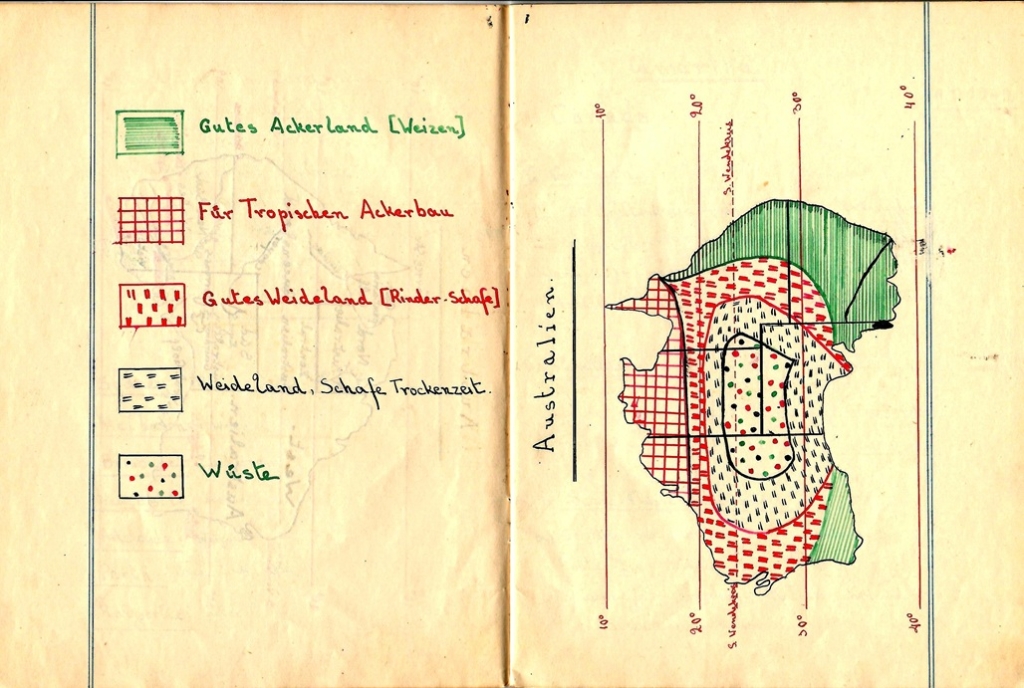 Gutes Ackerland [Weizen]
Für Tropischen Ackerbau
Gutes Weideland [Rinder-Schafe]
Weideland, Schafe Trockenzeit.
Wüste
Australien.
10° 20° S. Wendekreis 30° 40°
10° 20° S. Wendekreis 30° 40°